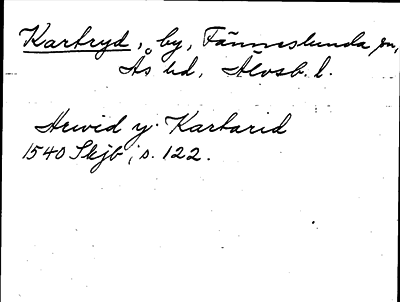 Kartryd, by, Fänneslunda sn,
Ås hd, Älvsb. l.
Arwid y. Kartarid
1540 Skjb, s. 122.